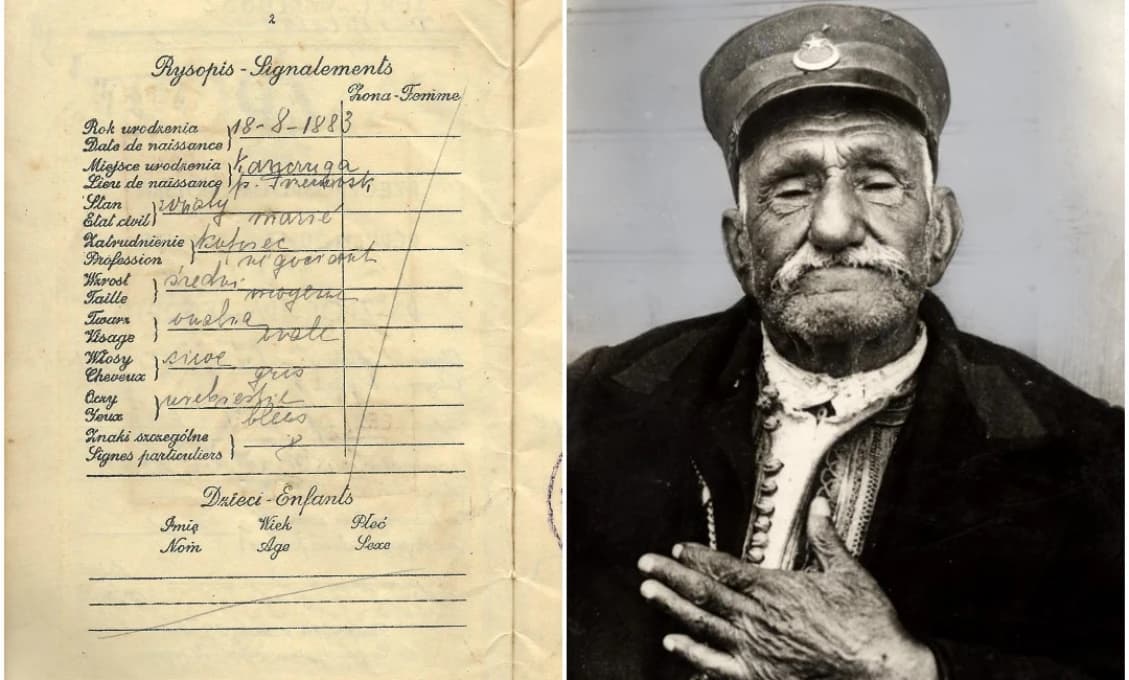 2
Rysopis - Signalements
Żona - Femme
Rok urodzenia
18-8-1883
Date de naissance
Miejsce urodzenia
Kańczuga
Lieu de naissance
p.
Stan
Etat civil
marié
Zatrudnienie
kupiec
Profession
négociant
Wzrost
średni
Taille
moyenne
Twarz
owalna
Visage
ovale
Włosy
siwe
Cheveux
gris
Oczy
niebieskie
Yeux
bleus
Znaki szczególne
Signes particuliers
Dzieci - Enfants
Imię Wiek Płeć
Nom Age Sexe